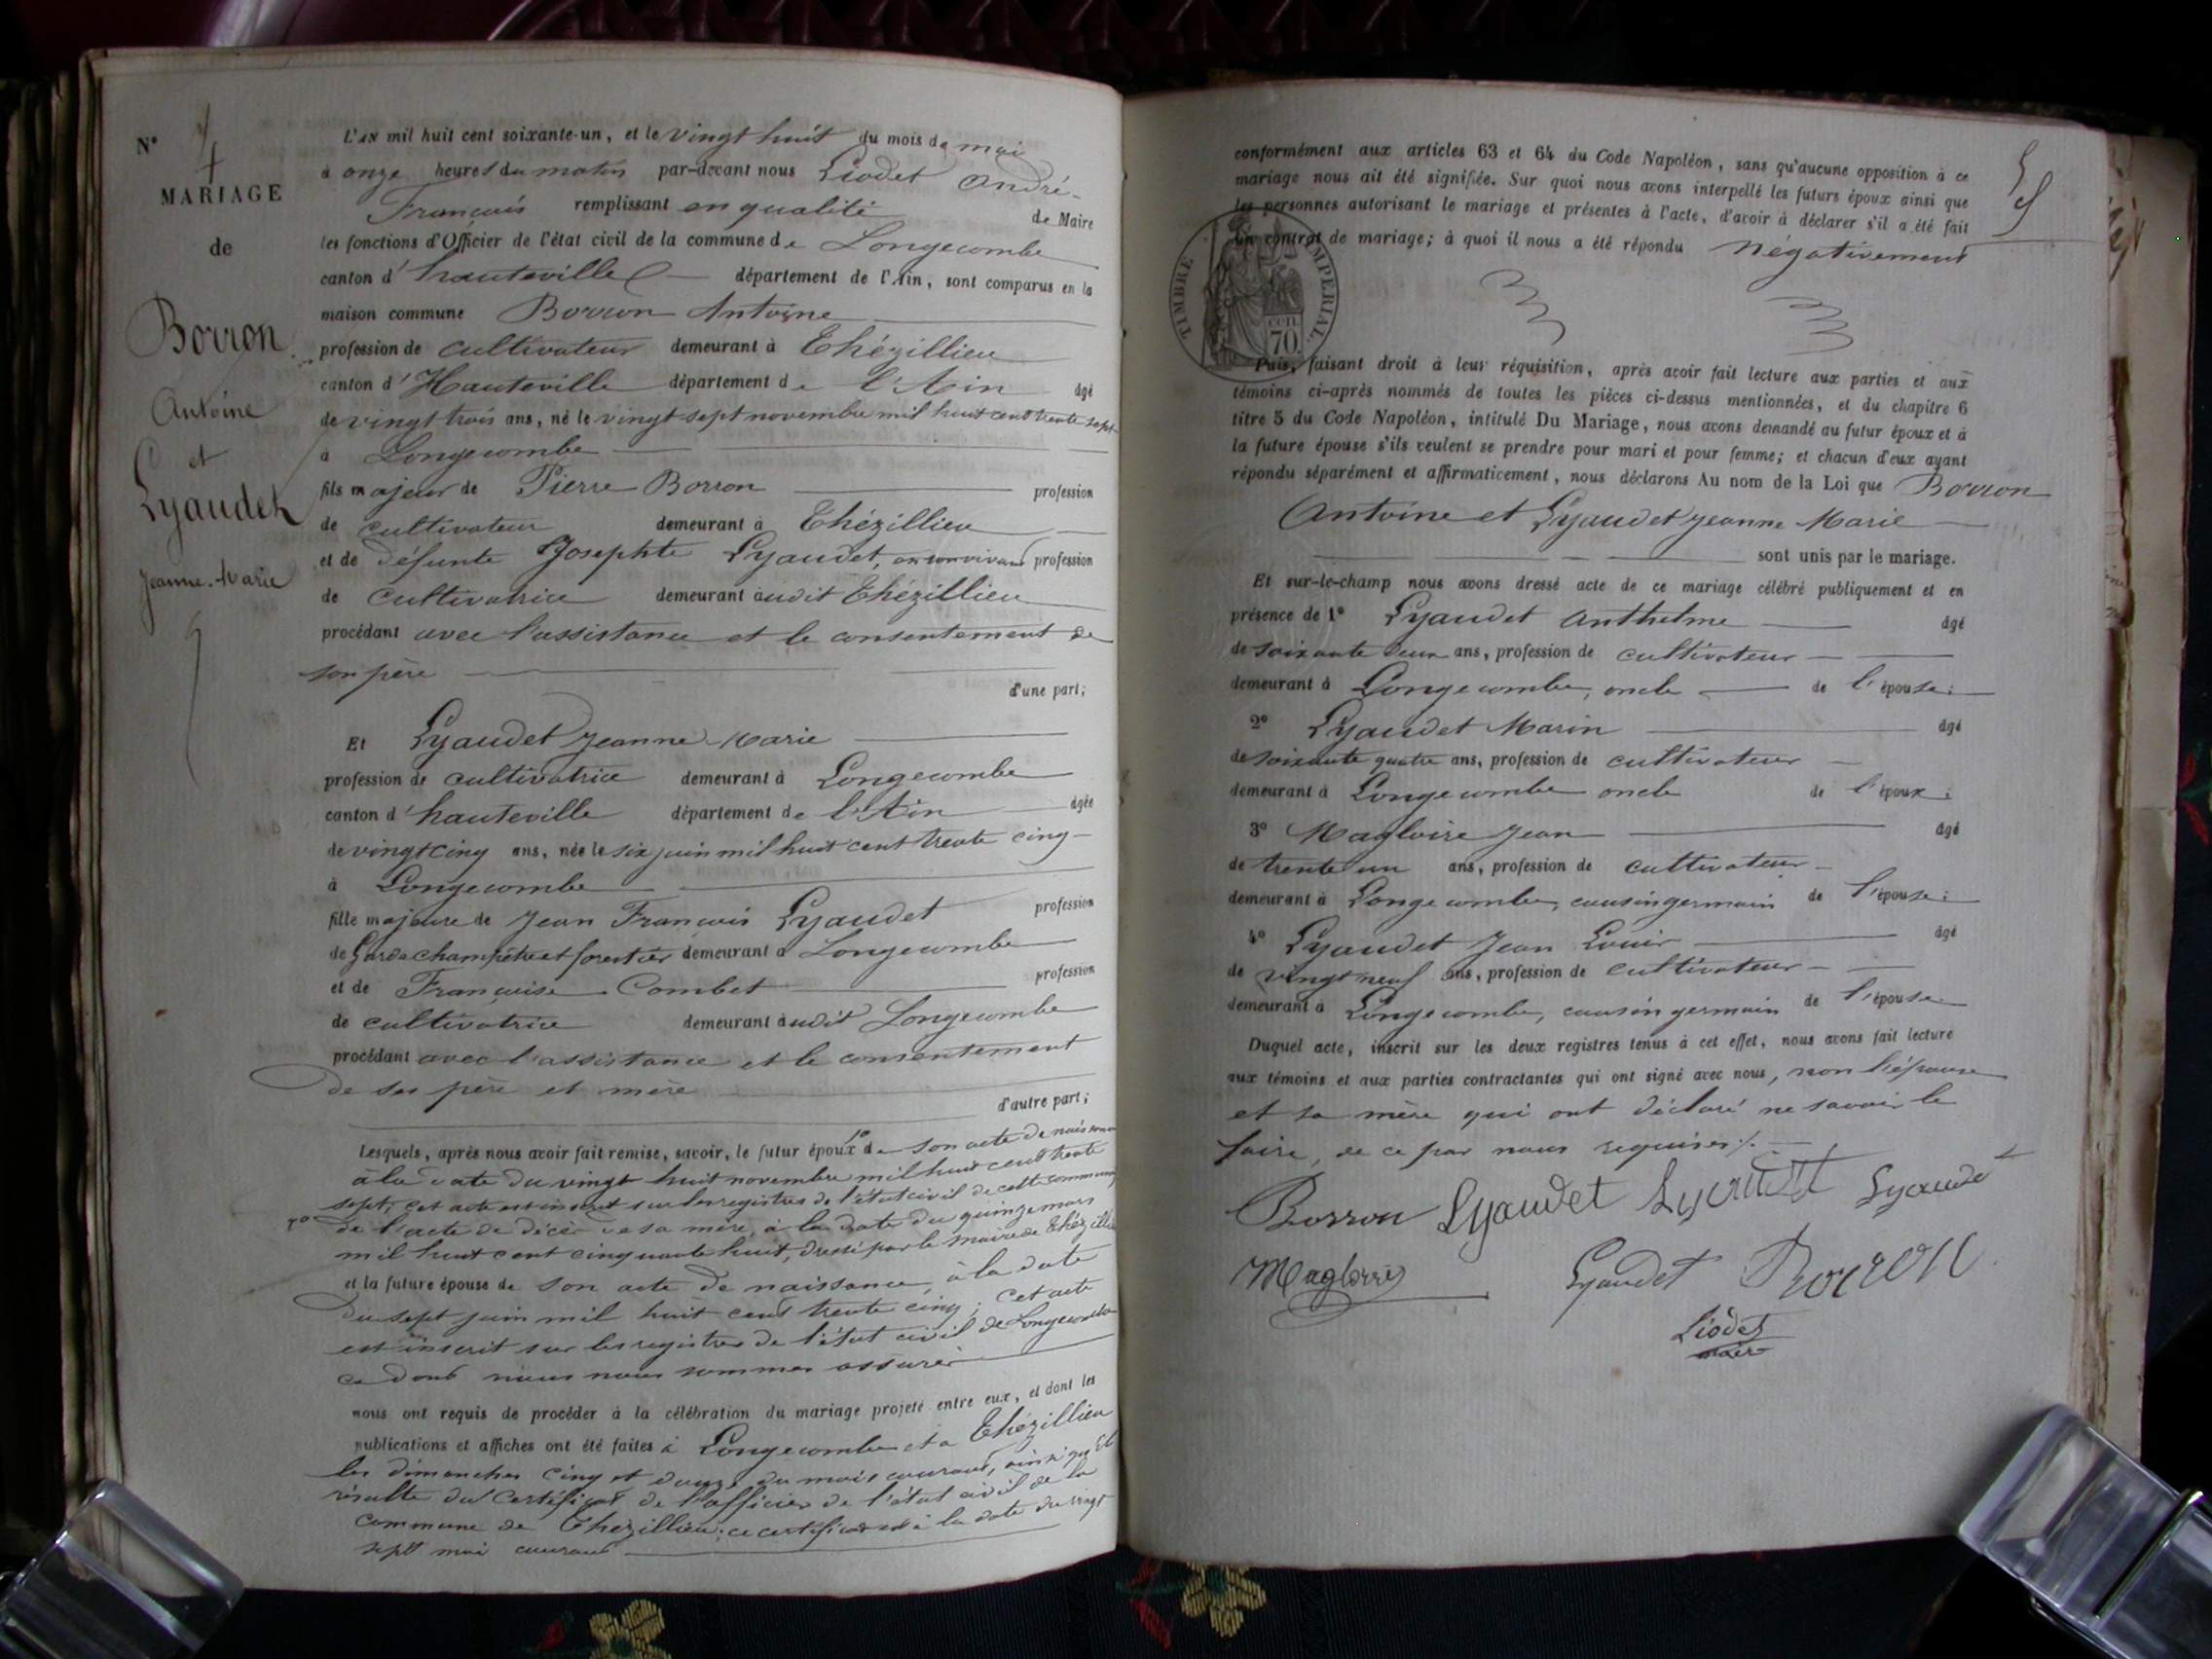 N° 4
MARIAGE
de
Borron
Antoine
et
Lyaudet
Jeanne-Marie
L'AN mil huit cent soixante-un, et le vingt huit du mois de mai
à onze heures du matin par-devant nous Liodet André-
François remplissant en qualité de Maire
les fonctions d'Officier de l'état civil de la commune de Longecombe
canton d'hauteville département de l'Ain, sont comparus en la
maison commune Borron Antoine
profession de cultivateur demeurant à Thézillieu
canton d'Hauteville département de l'Ain âgé
de vingt trois ans, né le vingt sept novembre mil huit cent trente sept
à Longecombe
fils majeur de Pierre Borron profession
de cultivateur demeurant à Thézillieu
et de défunte Josephte Lyaudet, en son vivant profession
de cultivatrice demeurant audit Thézillieu
procédant avec l'assistance et le consentement de
son père
d'une part;
Et Lyaudet Jeanne Marie
profession de cultivatrice demeurant à Longecombe
canton d'hauteville département de l'Ain âgée
de vingt cinq ans, née le six juin mil huit cent trente cinq
à Longecombe
fille majeure de Jean François Lyaudet profession
de Garde champêtre et forestier demeurant à Longecombe
et de Françoise Combet profession
de cultivatrice demeurant audit Longecombe
procédant avec l'assistance et le consentement
de ses père et mère
d'autre part;
Lesquels, après nous avoir fait remise, savoir, le futur époux 1° de son acte de naissance
à la date du vingt huit novembre mil huit cent trente
sept; cet acte est inscrit sur les registres de l'état civil de cette commune
2° de l'acte de décès de sa mère, à la date du quinze mars
mil huit cent cinquante huit, dressé par le maire de Thézillieu
et la future épouse de son acte de naissance, à la date
du sept juin mil huit cent trente cinq; cet acte
est inscrit sur les registres de l'état civil de Longecombe
ce dont nous nous sommes assurés
nous ont requis de procéder à la célébration du mariage projeté entre eux, et dont les
publications et affiches ont été faites à Longecombe et à Thézillieu
les dimanches cinq et douze du mois courant, ainsi qu'il
résulte du certificat de l'officier de l'état civil de la
commune de Thezillieu; ce certificat est à la date du vingt
sept mai courant
conformément aux articles 63 et 64 du Code Napoléon, sans qu'aucune opposition à ce
mariage nous ait été signifiée. Sur quoi nous avons interpellé les futurs époux ainsi que
les personnes autorisant le mariage et présentes à l'acte, d'avoir à déclarer s'il a été fait
un contrat de mariage; à quoi il nous a été répondu négativement
TIMBRE IMPERIAL
CEN. 70
Puis, faisant droit à leur réquisition, après avoir fait lecture aux parties et aux
témoins ci-après nommés de toutes les pièces ci-dessus mentionnées, et du chapitre 6
titre 5 du Code Napoléon, intitulé Du Mariage, nous avons demandé au futur époux et à
la future épouse s'ils veulent se prendre pour mari et pour femme; et chacun d'eux ayant
répondu séparément et affirmativement, nous déclarons Au nom de la Loi que Borron
Antoine et Lyaudet Jeanne Marie
sont unis par le mariage.
Et sur-le-champ nous avons dressé acte de ce mariage célébré publiquement et en
présence de 1° Lyaudet Anthelme âgé
de soixante deux ans, profession de cultivateur
demeurant à Longecombe, oncle de l'épouse;
2° Lyaudet Marin âgé
de soixante quatre ans, profession de cultivateur
demeurant à Longecombe oncle de l'époux;
3° Magloire Jean âgé
de trente un ans, profession de cultivateur
demeurant à Longecombe, cousin germain de l'épouse;
4° Lyaudet Jean Louis âgé
de vingt neuf ans, profession de cultivateur
demeurant à Longecombe, cousin germain de l'épouse
Duquel acte, inscrit sur les deux registres tenus à cet effet, nous avons fait lecture
aux témoins et aux parties contractantes qui ont signé avec nous, non l'épouse
et sa mère qui ont déclaré ne savoir le
faire, de ce par nous requises
Borron Lyaudet Lyaudet Lyaudet
Magloire Lyaudet Borron
Liodet
maire